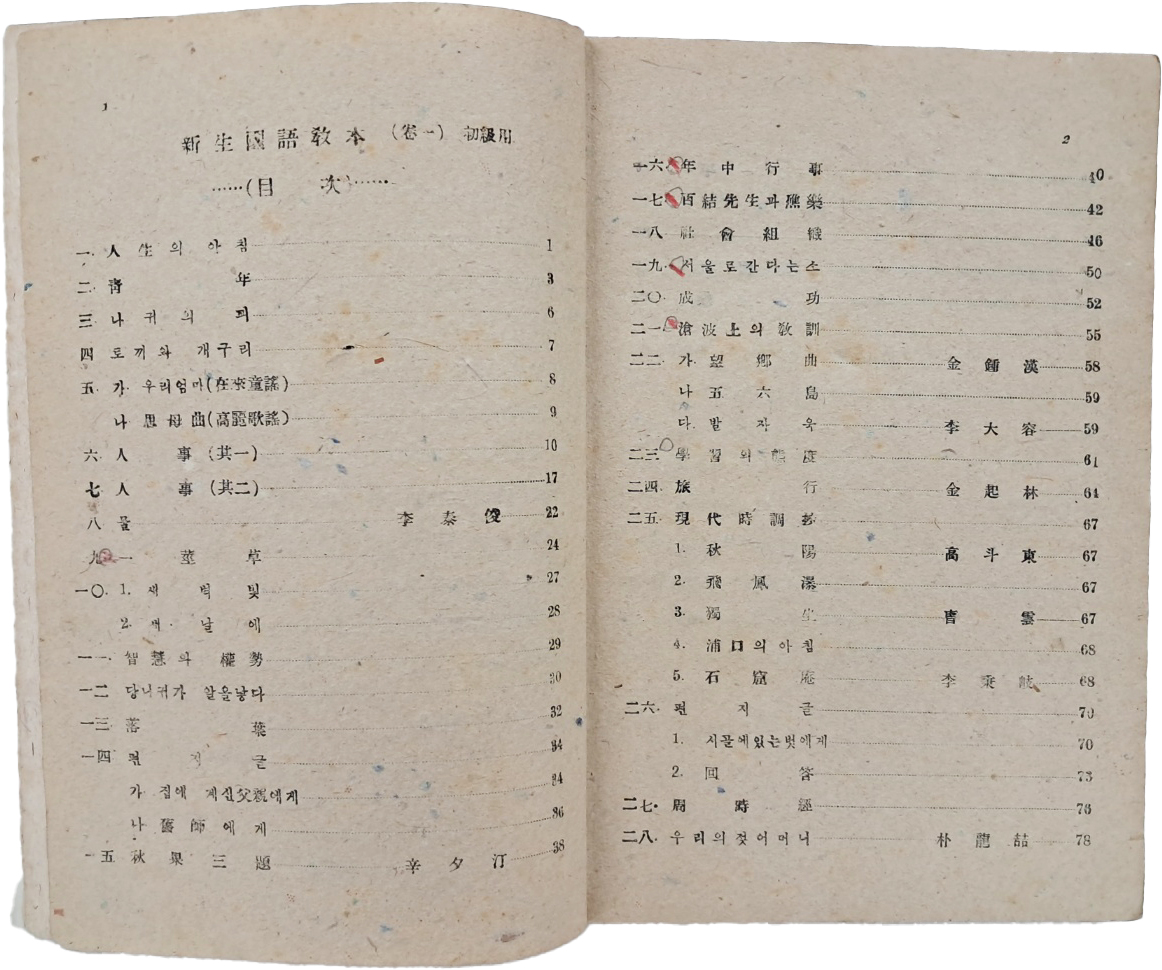 1
新生国語敎本 (卷一) 初級用
……(目 次)……
一. 人生의 아침 1
二. 靑 年 3
三. 나귀의 꾀 6
四 토끼와 개구리 7
五. 가. 우리엄마(在來童謠) 8
나 思母曲(高麗歌謠) 9
六. 人 事 (其一) 10
七. 人 事 (其二) 17
八 물 李泰俊 22
九 一 莖 草 24
一〇. 1. 새 벽 빛 27
2. 새 날 에 28
一一. 智慧와 權勢 29
一二 당나귀가 알을낳다 30
一三 落 葉 32
一四 편 지 글 34
가 집에 계신父親에게 34
나 舊師에게 36
一五 秋果三題 辛夕汀 38
2
一六. 年中行事 40
一七. 百結先生과 樂 42
一八 社會組織 46
一九. 서울로간다는소 50
二〇. 成 功 52
二一. 滄波上의 敎訓 55
二二. 가. 望鄕曲 金鍾漢 58
나 五六島 59
다. 발자욱 李大容 59
二三 學習의 態度 61
二四. 旅 行 金起林 64
二五. 現代時調抄 67
1. 秋 陽 高斗東 67
2. 飛鳳瀑 67
3. 獨 生 曺雲 67
4. 浦口의아침 68
5. 石窟庵 李秉岐 68
二六. 편 지 글 70
1. 시골에있는벗에게 70
2. 回 答 73
二七. 周時經 76
二八. 우리의젖어머니 朴龍喆 78